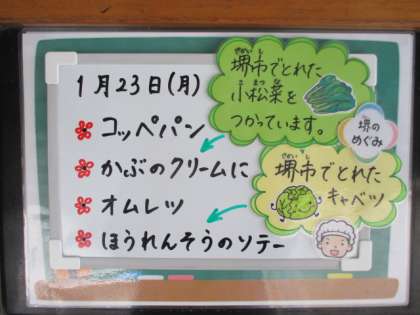 1月23日(月)
コッペパン
かぶのクリームに
オムレツ
ほうれんそうのソテー
堺市でとれた
小松菜を
つかっています。
堺の
めぐみ
堺市でとれた
キャベツ